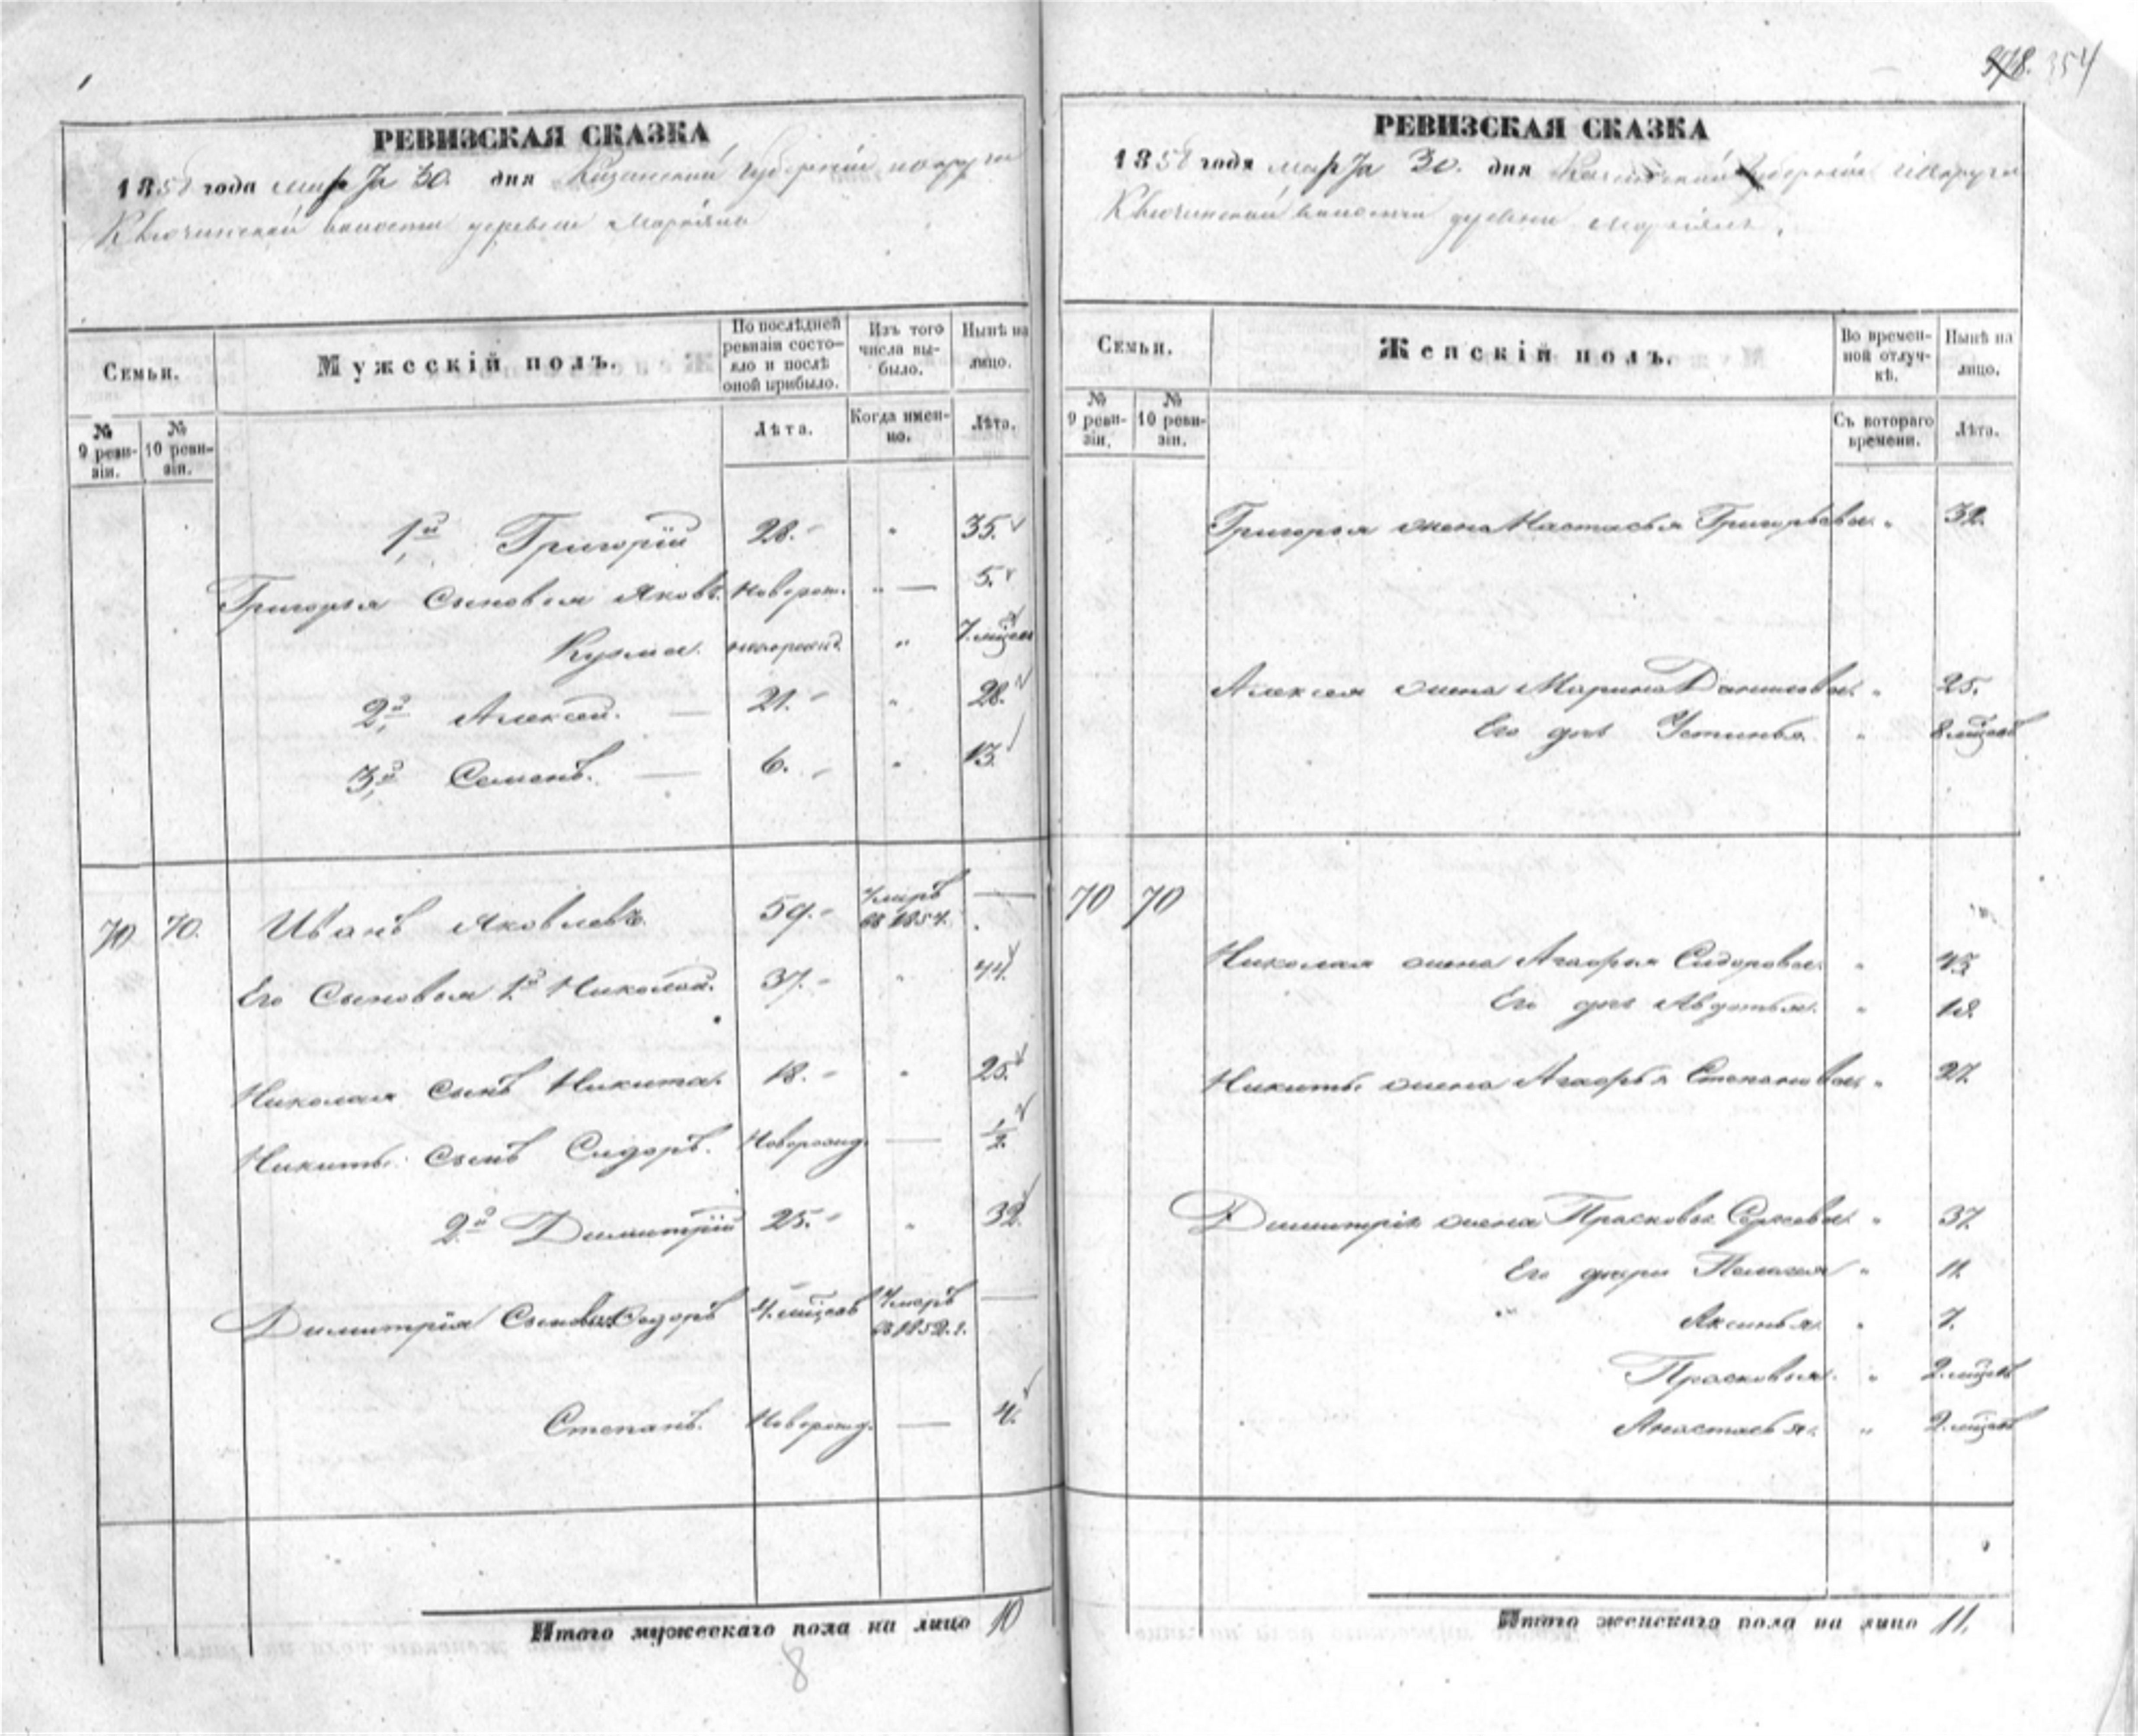 378. 354
РЕВИЗСКАЯ СКАЗКА
1858 года марта 30. дня Казанской губернии
волости деревни
Семьи.
Мужескій полъ.
По послѣдней ревизіи состояло и послѣ оной прибыло.
Изъ того числа выбыло.
Нынѣ на лицо.
№ 9 ревизіи.
№ 10 ревизіи.
Лѣта.
Когда именно.
Лѣта.
1й Григорій 28. " 35.
Григорья сыновья Яковъ. новорож. " — 5.
Кузма. новорожд. " 7. мцовъ
2й Алексей. — 21. " 28.
3й Семенъ. — 6. " 13.
70 70. Иванъ Яковлевъ. 59. умеръ въ 1857. —
Его сыновья 1й Николай. 37. " 44.
Николая сынъ Никита. 18. " 25.
Никиты сынъ Сидоръ. новорожд. — ½
2й Димитрій 25. " 32.
Димитрія сыновья Сидоръ 4. мцовъ умеръ въ 1852. г. —
Степанъ. новорожд. — 4.
Итого мужескаго пола на лицо 10
8
РЕВИЗСКАЯ СКАЗКА
1858 года марта 30. дня губерніи
волости деревни
Семьи.
Женскій полъ.
Во временной отлучкѣ.
Нынѣ на лицо.
№ 9 ревизіи.
№ 10 ревизіи.
Съ котораго времени.
Лѣта.
Григорья жена Настасья Григорьева. " 32.
Алексея жена Марина Данилова. " 25.
Его дчь Устинья. " 8 мцовъ
70 70
Николая жена Агафья Сидорова. " 45.
Его дчь Авдотья. " 18.
Никиты жена Агафья Степанова. " 27.
Димитрія жена Прасковья Сергеева. " 37.
Его дчери Пелагея " 11.
" Аксинья. " 7.
Прасковья. " 2. мцовъ
Анастасья. " 2. мцовъ
Итого женскаго пола на лицо 11.